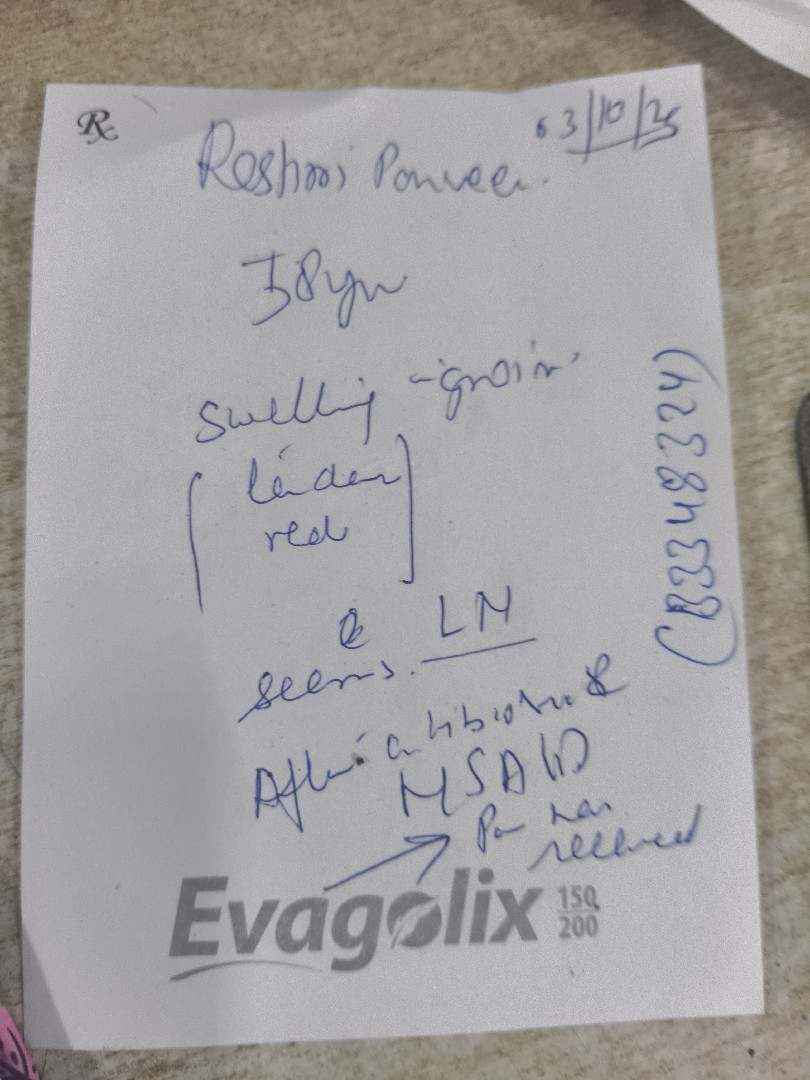 Rx
03/10/25
Reshmi Parveen.
38yr
Swelling - groin.
tender
red
LN
seems.
After antibiotic &
NSAID
Pain has
received
Evagolix 150/200